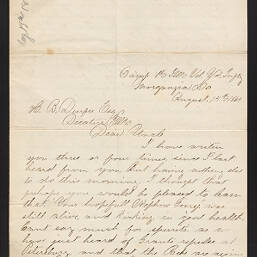 Camp 1st Ills Vol
Morganzia La
August, 1864
Decatur Ills
Dear Uncle
I have writen
you three or four times since I last
heard from you, but having nothing else
to do this morning I thought that
perhaps you would be pleased to hear
that Your hopefull Nephew was
still alive and kicking in good health
Cant say much for spirits as we
have just heard of Grants repulse at
Petersburg and that the Rebs are again